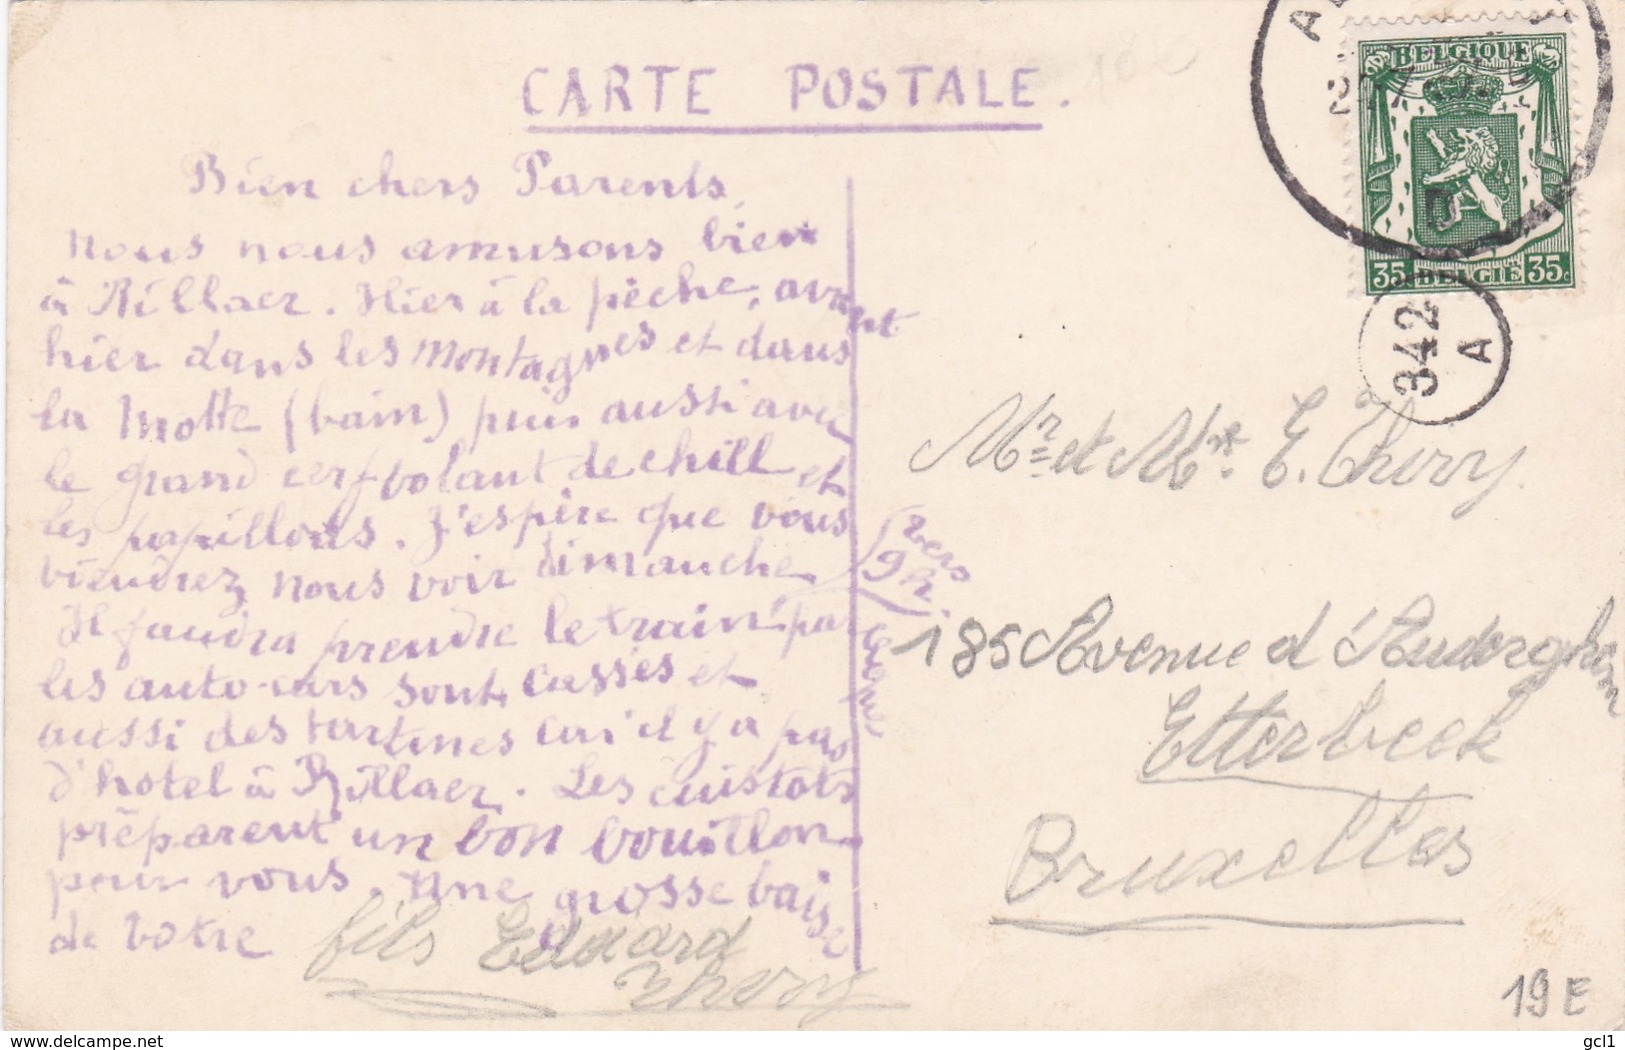 CARTE POSTALE.
Bien chers Parents,
Nous nous amusons bien
à Rillaer. Hier à la pêche, avant
hier dans les montagnes et dans
la Motte (bain) puis aussi avec
le grand cerf volant de chill et
les papillons. J'espère que vous
viendrez nous voir dimanche
vers
9 h.
Il faudra prendre le train, par
les auto-cars sont cassés et
aussi des tartines car il y a pas
d'hotel à Rillaer. Les cuistots
préparent un bon bouillon
pour vous. Une grosse baise
de votre fils Edouard
Thery
BELGIQUE
35 BELGIË 35c
D
342
A
Mr et Me. E. Thery.
185 Avenue d'Auderghem
Etterbeek
Bruxelles
19 E
www.delcampe.net
gcl1